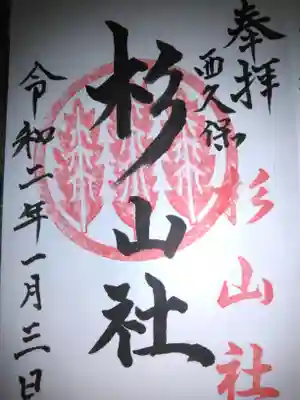 奉拝
西久保
杉山社
杉山社
令和二年一月三日